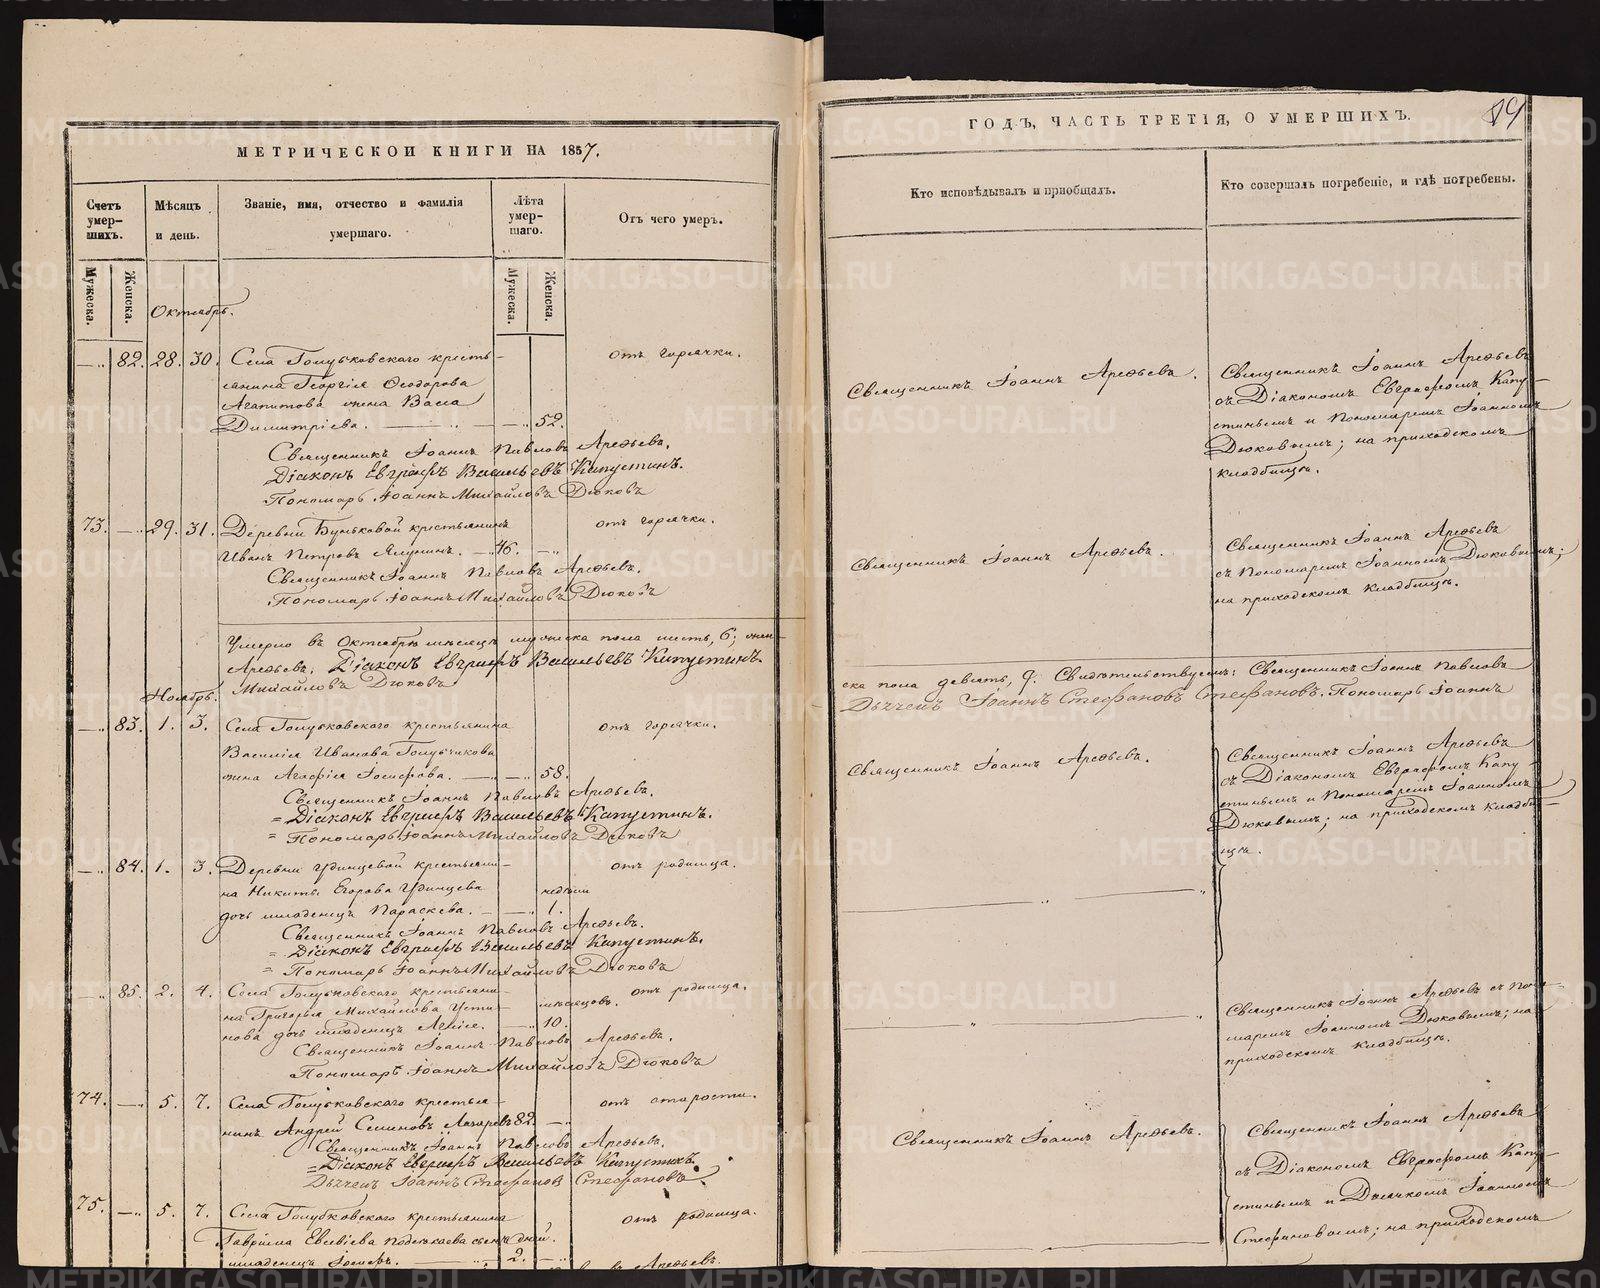 МЕТРИЧЕСКОЙ КНИГИ НА 1857.
Счетъ умершихъ.
Мѣсяцъ и день.
Званіе, имя, отчество и фамилія умершаго.
Лѣта умершаго.
Отъ чего умеръ.
Мужеска.
Женска.
Мужеска.
Женска.
Октябрь.
—„ 82. 28. 30. Села Голубковскаго кресть- отъ горячки.
янина Георгія Ѳеодорова
Агапитова жена Васса
Димитріева. — „ — „ 52.
Священникъ Іоаннъ Павловъ Арефьевъ.
Діаконъ Евграфъ Васильевъ Капустинъ.
Пономарь Іоаннъ Михайловъ Дюковъ
73. —„ 29. 31. Деревни Буньковой крестьянинъ отъ горячки.
Иванъ Петровъ Ялунинъ. — 46. —„
Священникъ Іоаннъ Павловъ Арефьевъ.
Пономарь Іоаннъ Михайловъ Дюковъ
Умерло въ Октябрѣ мѣсяцѣ мужеска пола шесть, 6; жен-
Арефьевъ. Діаконъ Евграфъ Васильевъ Капустинъ.
Михайловъ Дюковъ
Ноябрь.
—„ 83. 1. 3. Села Голубковскаго крестьянина отъ горячки.
Василія Иванова Голубчикова
жена Агафія Іосифова. —„ —„ 58.
Священникъ Іоаннъ Павловъ Арефьевъ.
= Діаконъ Евграфъ Васильевъ Капустинъ.
= Пономарь Іоаннъ Михайловъ Дюковъ
—„ 84. 1. 3. Деревни Удинцевой крестьяни- отъ родимца.
на Никиты Егорова Удинцева недѣли
дочь младенецъ Параскева. — —„ 1.
Священникъ Іоаннъ Павловъ Арефьевъ.
= Діаконъ Евграфъ Васильевъ Капустинъ.
= Пономарь Іоаннъ Михайловъ Дюковъ
—„ 85. 2. 4. Села Голубковскаго крестьяни- отъ родимца.
на Григорья Михайлова Усти- мѣсяцовъ.
нова дочь младенецъ —„ 10.
Священникъ Іоаннъ Павловъ Арефьевъ.
Пономарь Іоаннъ Михайловъ Дюковъ
74. —„ 5. 7. Села Голубковскаго крестья- отъ старости.
нинъ Андрей Семиновъ Лазаревъ 82. —„
Священникъ Іоаннъ Павловъ Арефьевъ.
= Діаконъ Евграфъ Васильевъ Капустинъ.
Дьячекъ Іоаннъ Стефановъ Стефановъ.
75. —„ 5. 7. Села Голубковскаго крестьянина отъ родимца.
Гавріила Евсевіева сынъ дней.
младенецъ Іосифъ. — 2. —„
Арефьевъ.
ГОДЪ, ЧАСТЬ ТРЕТІЯ, О УМЕРШИХЪ.
Кто исповѣдывалъ и пріобщалъ.
Кто совершалъ погребеніе, и гдѣ погребены.
Священникъ Іоаннъ Арефьевъ.
Священникъ Іоаннъ Арефьевъ
съ Діакономъ Евграфомъ Капу-
стинымъ и Пономаремъ Іоанномъ
Дюковымъ; на приходскомъ
кладбищѣ.
Священникъ Іоаннъ Арефьевъ.
Священникъ Іоаннъ Арефьевъ
съ Пономаремъ Іоанномъ Дюковымъ;
на приходскомъ кладбищѣ.
ска пола девять, 9. Свидѣтельствуемъ: Священникъ Іоаннъ Павловъ
Дьячекъ Іоаннъ Стефановъ Стефановъ. Пономарь Іоаннъ
Священникъ Іоаннъ Арефьевъ.
Священникъ Іоаннъ Арефьевъ
съ Діакономъ Евграфомъ Капу-
стинымъ и Пономаремъ Іоанномъ
Дюковымъ; на приходскомъ кладби-
щѣ.
Священникъ Іоаннъ Арефьевъ съ Поно-
маремъ Іоанномъ Дюковымъ; на
приходскомъ кладбищѣ.
Священникъ Іоаннъ Арефьевъ.
Священникъ Іоаннъ Арефьевъ
съ Діакономъ Евграфомъ Капу-
стинымъ и Дьячкомъ Іоанномъ
Стефановымъ; на приходскомъ
METRIKI.GASO-URAL.RU